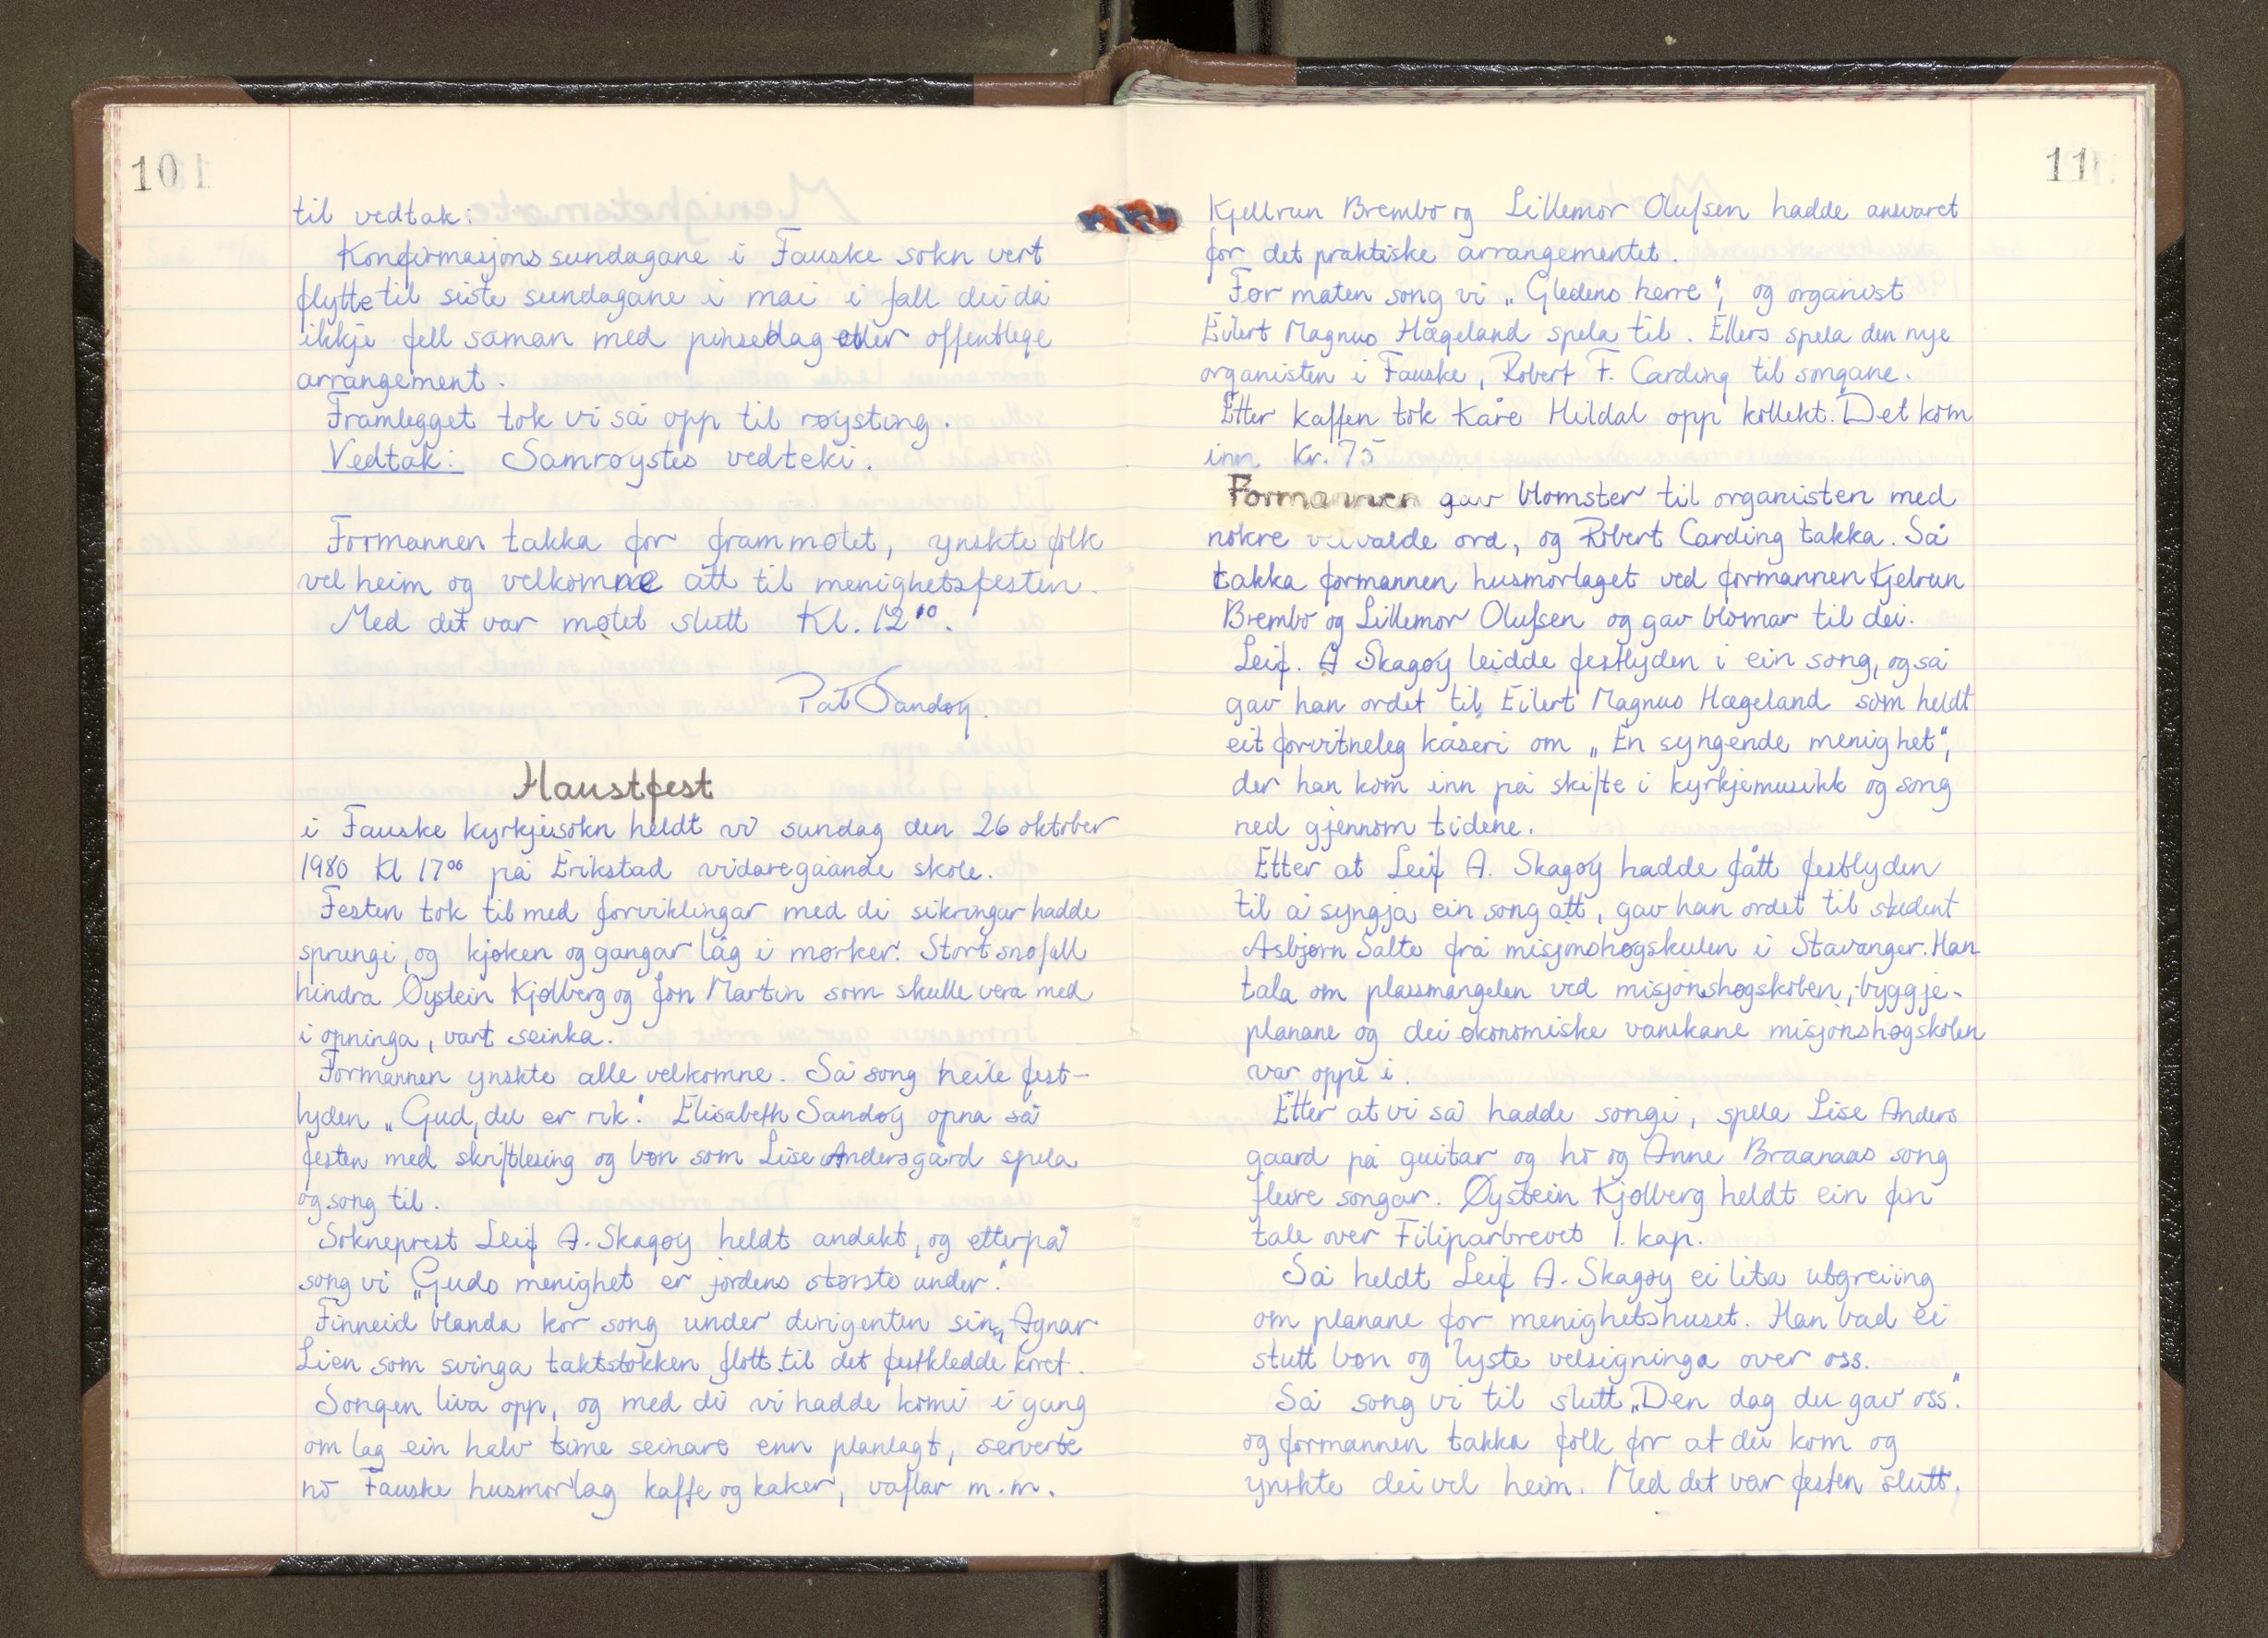 10
til vedtak:
Konfirmasjonssundagane i Fauske sokn vert
flytte til siste sundagane i mai i fall dei då
ikkje fell saman med pinsedag eller offentlege
arrangement.
Framlegget tok vi så opp til røysting.
Vedtak: Samrøystes vedteki.
Formannen takka for frammøtet, ynskte folk
vel heim og velkomne att til menighetsfesten.
Med det var møtet slutt Kl. 12¹⁰.
Pat Sandøy.
Haustfest
i Fauske kyrkjesokn heldt vi sundag den 26 oktober
1980 Kl 17⁰⁰ på Erikstad vidaregåande skole.
Festen tok til med forviklingar med di sikringar hadde
sprungi, og kjøken og gangar låg i mørker. Stort snøfall
hindra Øystein Kjølberg og Jon Martin som skulle vera med
i opninga, vart seinka.
Formannen ynskte alle velkomne. Så song heile fest-
lyden „Gud, du er rik." Elisabeth Sandøy opna så
festen med skriftlesing og bøn som Lise Andersgård spela
og song til.
Sokneprest Leif A. Skagøy heldt andakt, og etterpå
song vi „Guds menighet er jordens største under."
Finneid blanda kor song under dirigenten sin, Agnar
Lien som svinga taktstokken flott til det festkledde koret.
Songen liva opp, og med di vi hadde komi i gang
om lag ein halv time seinare enn planlagt, serverte
no Fauske husmorlag kaffe og kaker, vaflar m.m.
11
Kjellrun Brembo og Lillemor Olufsen hadde ansvaret
for det praktiske arrangementet.
Før maten song vi „Gledens herre", og organist
Eilert Magnus Hægeland spela til. Ellers spela den nye
organisten i Fauske, Robert F. Carding til songane.
Etter kaffen tok Kåre Hildal opp kollekt. Det kom
inn Kr. 75
Formannen gav blomster til organisten med
nokre velvalde ord, og Robert Carding takka. Så
takka formannen husmorlaget ved formannen Kjelrun
Brembo og Lillemor Olufsen og gav blomar til dei.
Leif. A Skagøy leidde festlyden i ein song, og så
gav han ordet til Eilert Magnus Hægeland som heldt
eit forvitneleg kåseri om „En syngende menighet",
der han kom inn på skifte i kyrkjemusikk og song
ned gjennom tidene.
Etter at Leif A. Skagøy hadde fått festlyden
til å syngja ein song att, gav han ordet til student
Asbjørn Salte frå misjonshøgskulen i Stavanger. Han
tala om plassmangelen ved misjonshøgskolen, byggje-
planane og dei økonomiske vanskane misjonshøgskolen
var oppe i.
Etter at vi så hadde songi, spela Lise Anders
gaard på guitar og ho og Anne Braanaas song
fleire songar. Øystein Kjølberg heldt ein fin
tale over Filiparbrevet 1. kap.
Så heldt Leif A. Skagøy ei lita utgreiing
om planane for menighetshuset. Han bad ei
stutt bøn og lyste velsigninga over oss.
Så song vi til slutt „Den dag du gav oss".
og formannen takka folk for at dei kom og
ynskte dei vel heim. Med det var festen slutt.